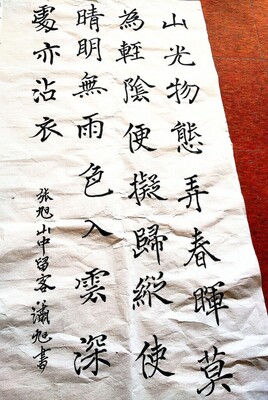 山光物態弄春暉莫
為輕陰便擬歸縱使
晴明無雨色入雲深
處亦沾衣
張旭山中留客 瀟旭書